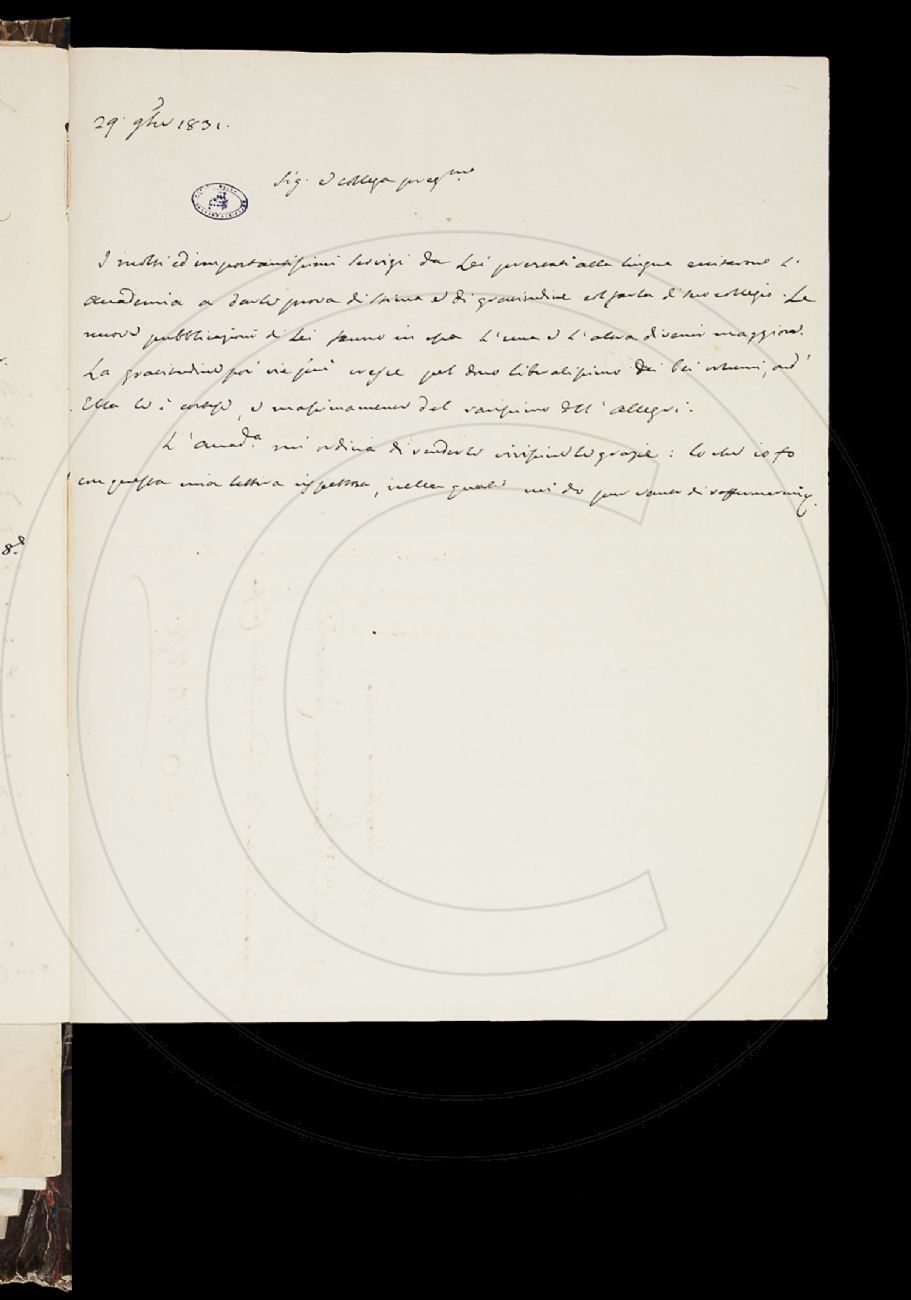 29. 9bre 1831.
Sig. e collega preg.mo
I molti ed importantissimi servigi da Lei prestati alla lingua eccitarono l'
accademia a darle prova di stima e di gratitudine col farla di suo collegio. Le
nuove pubblicazioni di Lei fanno in essa l'una e l'altra divenir maggiore.
La gratitudine poi vie più cresce pel dono liberalissimo dei bei volumi, ond'
Ella le è cortese, e massimamente del rarissimo dell'Allegri.
L'Accad.a mi ordina di renderle vivissime grazie: lo che io fo
con questa mia lettera rispettosa, nella quale mi do pur vanto di raffermarmi